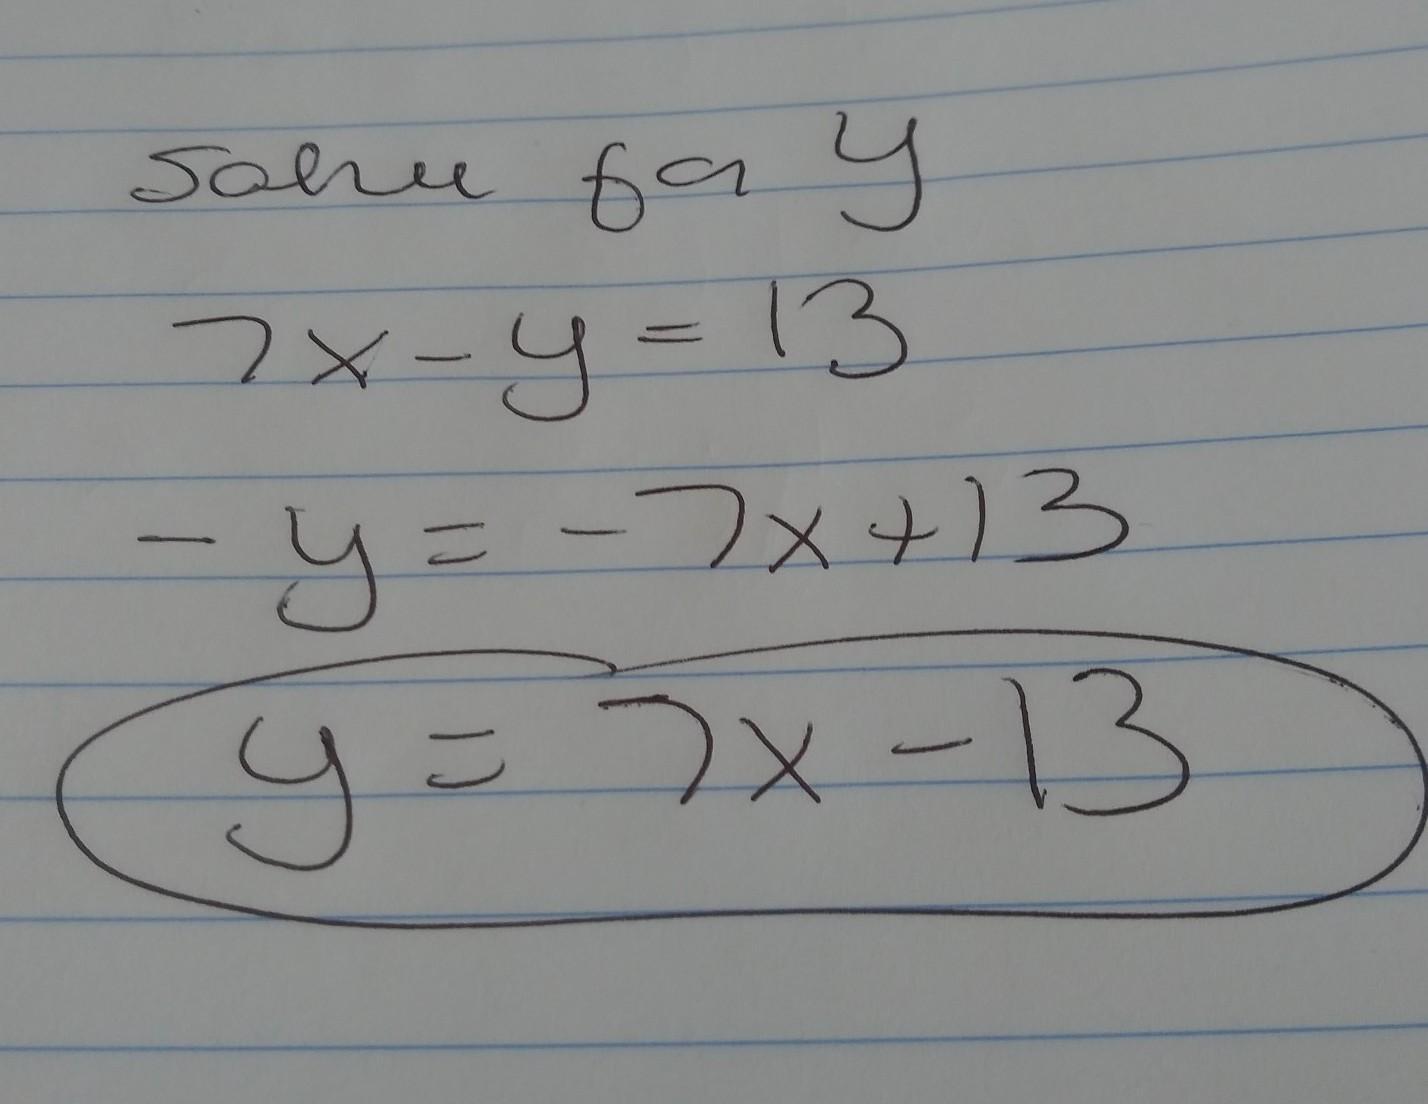 Solve for y
7x - y = 13
- y = - 7x + 13
y = 7x - 13